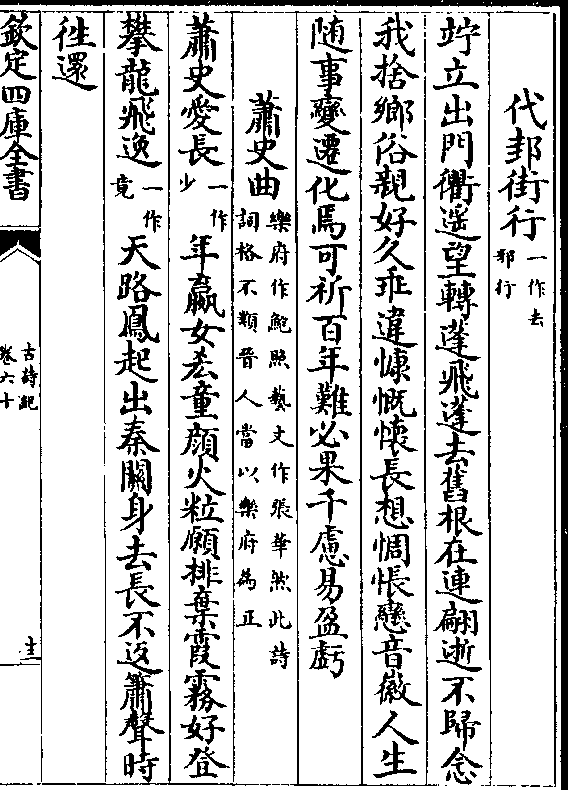 代邽街行一作去邪行
竚立出門衢遥望轉蓬飛蓬去舊根在連翩逝不歸念
我捨鄉俗親好久乖違慷慨懷長想惆悵戀音徽人生
随事變遷化焉可祈百年難必果千慮易盈虧
蕭史曲樂府作鮑照藝文作張華然此詩詞格不類晉人當以樂府為正
蕭史愛長一作少年嬴女吝童顔火粒願排棄霞霧好登
攀龍飛逸一作竟天路鳳起出秦關身去長不返簫聲時
徃還
欽定四庫全書
古詩紀
卷六十